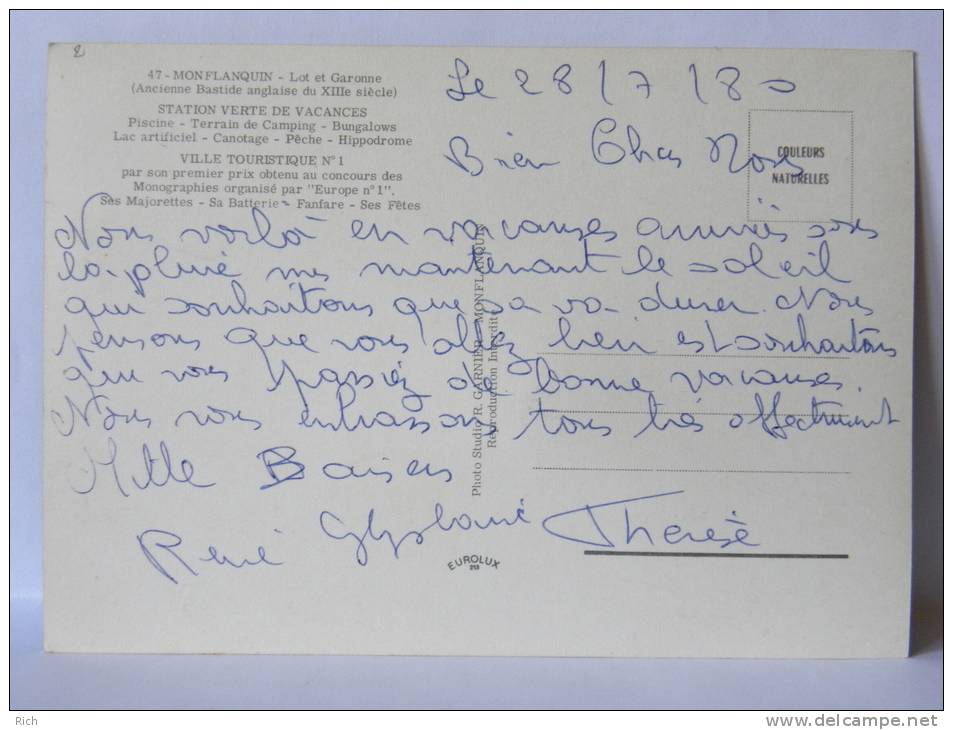 2
47 - MONFLANQUIN - Lot et Garonne
(Ancienne Bastide anglaise du XIIIe siècle)
STATION VERTE DE VACANCES
Piscine - Terrain de Camping - Bungalows
Lac artificiel - Canotage - Pêche - Hippodrome
VILLE TOURISTIQUE N° 1
par son premier prix obtenu au concours des
Monographies organisé par "Europe n° 1".
Ses Majorettes - Sa Batterie - Fanfare - Ses Fêtes
COULEURS
NATURELLES
Le 28/7/80
Bien Chers Nous
Nous voilà en vacanses arrivés sous
la pluie mes mantenant le soleil
que souhaitons que sa va durer. Nous
pensons que vous allez bien est souhaitons
que vous passiez de bonne vacanses.
Nous vous enbrassons tous très affectment
Mille Baisers
René Ghyslaine Therèse
Photo Studio R. GARNIER - MONFLANQUIN
Reproduction Interdite
EUROLUX
213
Rich
www.delcampe.net